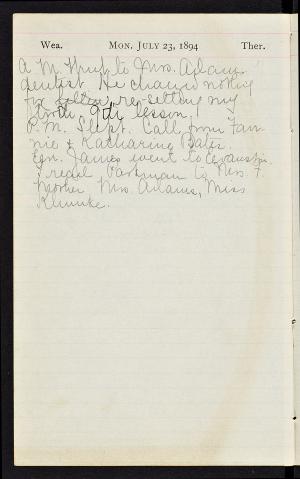 Wea. Mon. July 23, 1894 Ther.
A.M. Went to Mrs. Adams'
dentist. He charged nothing
for re-setting my
tooth 9th lesson
P.M. Slept. Call from Fan-
nie & Katharine Bates.
Eve. James went to Evanston.
I read Parkman to Mrs. F.
Mother Mrs. Adams, Miss
Klumke.